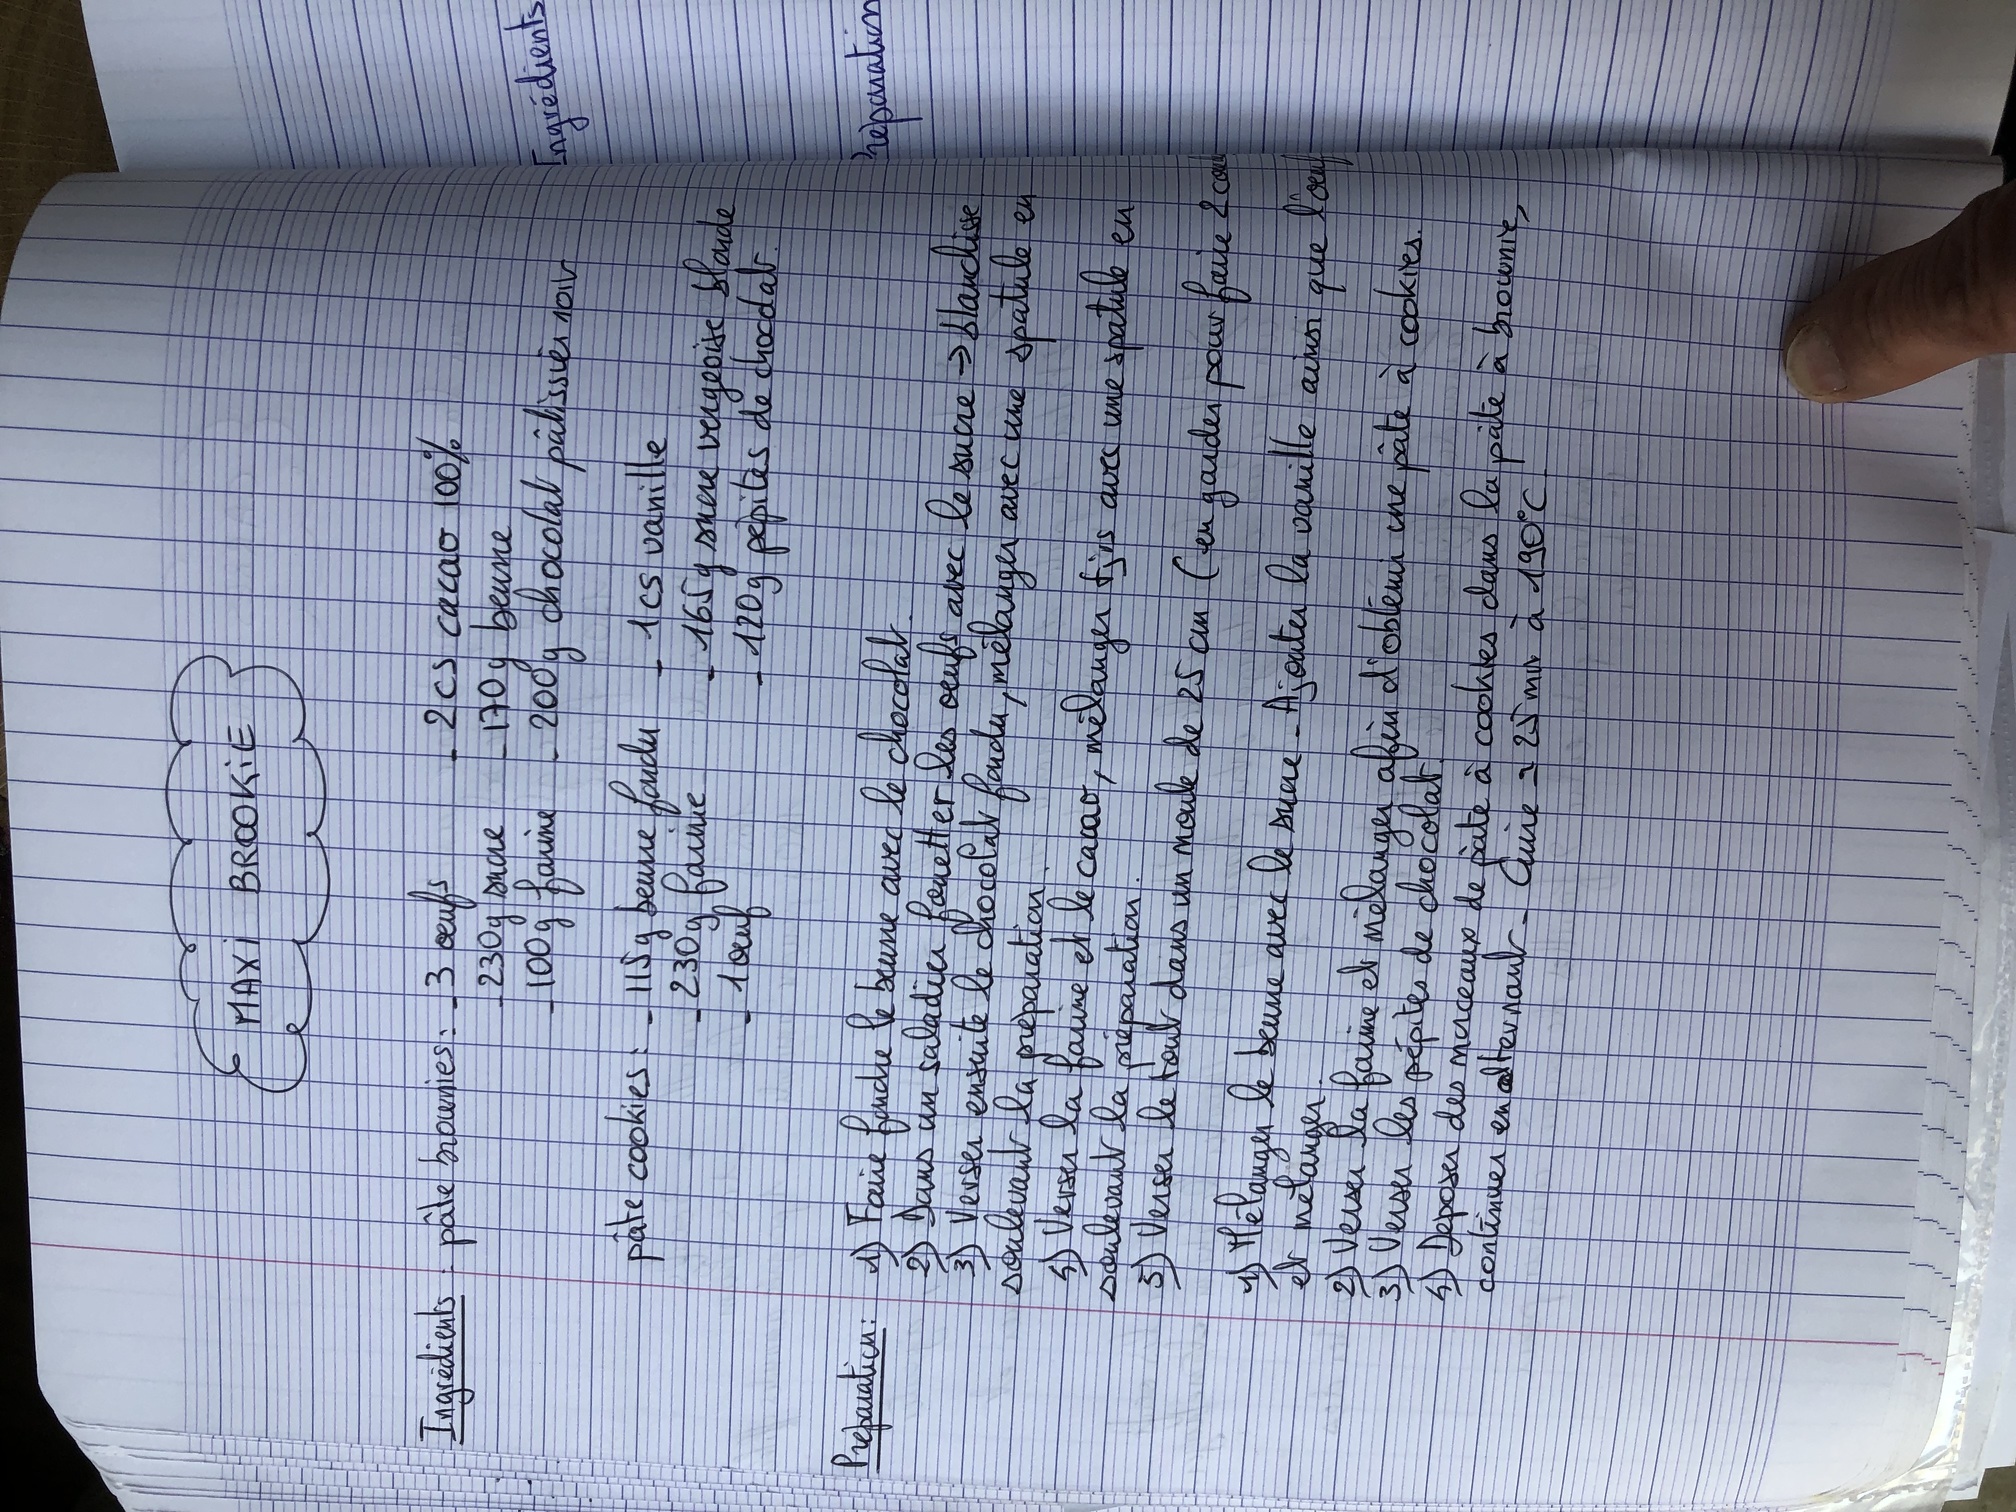 MAXI BROOKiE
Ingrédients : pâte brownies : - 3 oeufs - 2 CS cacao 100%
- 230g sucre - 170g beurre
- 100g farine - 200g chocolat pâtissier noir
pâte cookies : - 115g beurre fondu - 1 CS vanille
- 230g farine - 165g sucre vergeoise blonde
- 1 oeuf - 120g pépites de chocolat
Préparation :
1) Faire fondre le beurre avec le chocolat.
2) Dans un saladier fouetter les oeufs avec le sucre → blanchisse
3) Verser ensuite le chocolat fondu, mélanger avec une spatule en
soulevant la préparation.
4) Verser la farine et le cacao, mélanger tjrs avec une spatule en
soulevant la préparation.
5) Verser le tout dans un moule de 25 cm (en garder pour faire 2
1) Mélanger le beurre avec le sucre - Ajouter la vanille ainsi que l'oeuf
et mélanger.
2) Verser la farine et mélanger afin d'obtenir une pâte à cookies.
3) Verser les pépites de chocolat.
4) Déposer des morceaux de pâte à cookies dans la pâte à brownie,
continuer en alternant - Cuire 25 min à 190°C.
Ingrédients
Préparation